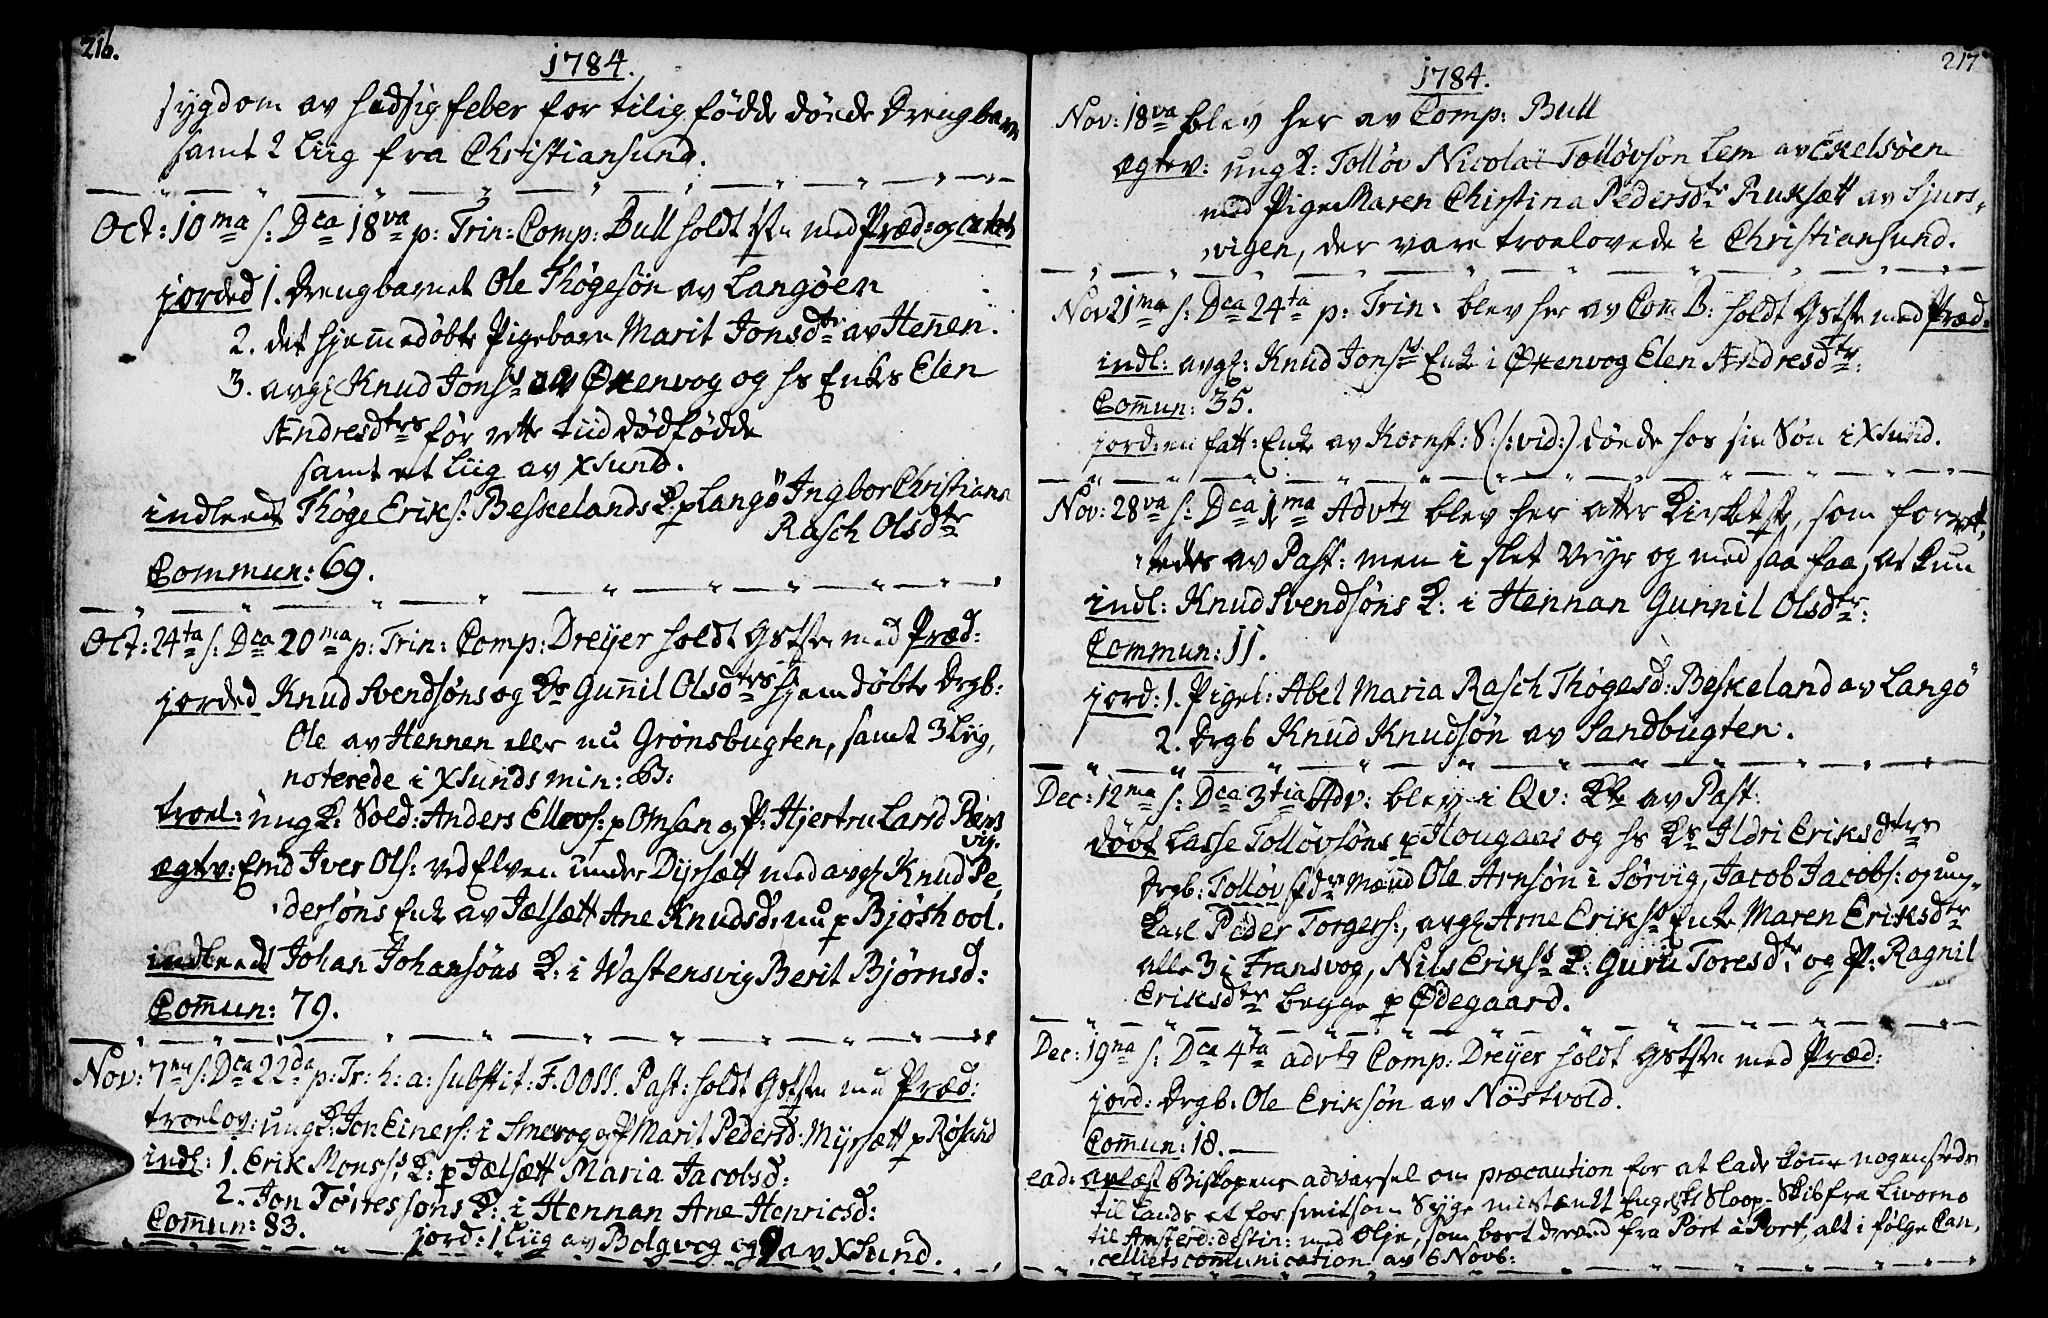 216.
1784.
sygdom av hidsig feber for tilig fødde dönde Drengbarn
samt 2 Liig fra Christiansund.
Oct: 10ma s: Dca 18va p: Trin: Comp: Bull holdt tstn med Præd: og catech
jorded 1. Drengbarnet Ole Thøgesön av Langöen
2. det hjemedöbte Pigebarn Marit Jonsdtr av Hennen.
3. avgl Knud Jonss av Øxenvog og hs Enkes Elen
Andresdtrs för rette tiid dödfödde
samt et Liig av Xsund.
indleedt Thöge Eriks: Beskelands K: p Langö Ingbor Christiana
Rasch Olsdtr
Commun: 69.
Oct: 24ta s: Dca 20ma p: Trin: Comp: Dreyer holdt Gstsn med Præd:
jorded Knud Svendsöns og Ks Gunil Olsdtrs hjemdöbte Drgb:
Ole av Hennen eller nu Grönsbugten, samt 3 Liig,
noterede i Xsunds min: B:
troel: ungk: Sold: Anders Ellevs: p Omsan og P: Hjertru Larsd Rems
vig.
ægtev: Emd Iver Ols: ved Elven under Dyrsætt med avgl Knud Pe,
dersöns Enk av Jælsætt Ane Knudsd: nu p Bjöshool.
indleedt Johan Johansöns K: i Wastensvig Berit Björnsd:
Comun: 79.
Nov: 7ma s: Dca 22da p: Tr: h: a: substit: F. OOSS. Past: holdt Gstsn med Præd:
troelov: ungk: Jon Einers: i Smevog og P Marit Pedersd: Myrsætt p Rosand
indl: 1. Erik Monss K: p Jælsætt Maria Jacobsd:
2. Jon Törressöns K: i Hennan Ane Henricsd:
Comun: 83.
jord: 1 Liig av Bolgvog og 9 av Xsund.
217
1784.
Nov: 18va blev her av Comp: Bull
ægtev: ungk: Tollöv Nicolai Tollövson Lem av Ekelsöen
med Pige Maren Christina Pedersdtr Ruksætt av Sjurs,
vigen, der vare troelovede i Christiansund.
Nov 21ma s: Dca 24ta p: Trin: blev her av Com B: holdt Gstsn med Præd:
indl: avgl: Knud Jonss Enk i Øxenvog Elen Andresdtr:
Comun: 35.
jord: en fatt: Enk av Kornst: S: (:vid:) dönde hos sin Sön i Xsund.
Nov: 28va s: Dca 1ma Advtq blev her atter Kirketste, som forrett,
tedes av Past: men i slet Veyr og med saa faa, at kun
indl: Knud Svendsöns K: i Hennan Gunnil Olsdtr:
Commun: 11.
jord: 1. Pigel: Abel Maria Rasch Thögesd: Beskeland av Langö
2. Drgb Knud Knudsön av Sandbugten.
Dec: 12ma s: Dca 3tia Adv: blev i Qv: Kk av Past:
döbt Lasse Tollövsöns p Hougans og hs Ks Ildri Eriksdtrs
Drgb: Tollöv Fdr Mænd Ole Arnsön i Sörvig, Jacob Jacobs: og ung,
Karl Peder Torgers:, avgl Arne Erikss Enke Maren Eriksdtr
alle 3 i Fransvog, Nils Erikss K: Guru Toresdtr og P: Ragnil
Eriksdtr begge p Ødegaard.
Dec: 19na s: Dca 4ta advtq Comp: Dreyer holdt Gstsn med Præd:
jord: Drgb: Ole Eriksön av Nöstvold.
Comun: 18.
ead: avlæst Biskopens advarsel om præcaution for at lade komme nogensteds
til lands et for smitsom Syge mistænkt Engelsk Sloop-Skib fra Livorno
til Amsterd: destin: med Olje, som bort dreved fra Port à Port, alt i följe Can,
celliets comunication av 6 Novb: